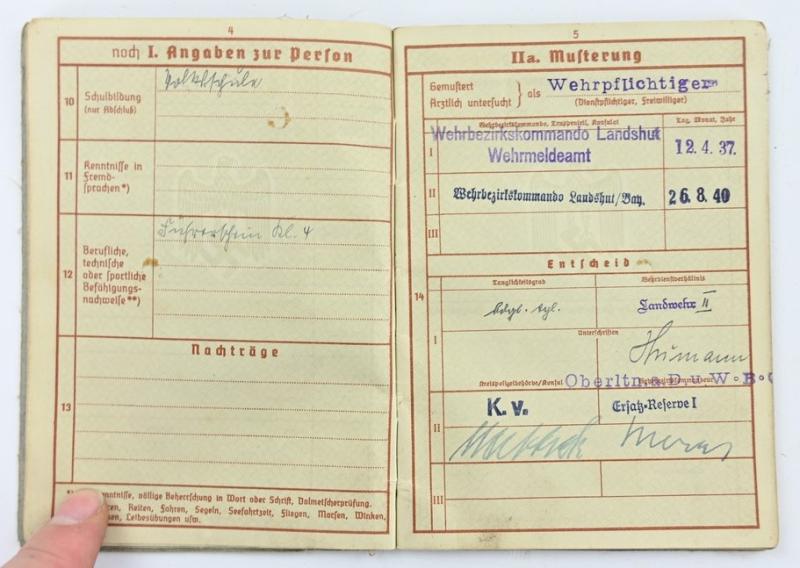 4
noch I. Angaben zur Person
10
Schulbildung
(nur Abschluß)
Volksschule
11
Kenntnisse in
Fremd-
sprachen*)
12
Berufliche,
technische
oder sportliche
Befähigungs-
nachweise**)
Führerschein Kl. 4
Nachträge
13
kenntnisse, völlige Beherrschung in Wort oder Schrift, Dolmetscherprüfung.
Reiten, Fahren, Segeln, Seefahrtzeit, Fliegen, Morsen, Winken,
Leibesübungen usw.
5
IIa. Musterung
Gemustert
Ärztlich untersucht
als Wehrpflichtiger
(Dienstpflichtiger, Freiwilliger)
Wehrbezirkskommando, Truppenteil, Konsulat
Tag, Monat, Jahr
I
Wehrbezirkskommando Landshut
Wehrmeldeamt
12.4.37.
II
Wehrbezirkskommando Landshut/Bay.
26.8.40
III
Entscheid
14
Tauglichkeitsgrad
Wehrdienstverhältnis
I
Landwehr II
Unterschriften
Kreispolizeibehörde/Konsul
Oberltn a.D. u. W.B.O
II
K.v.
Ersatz-Reserve I
III